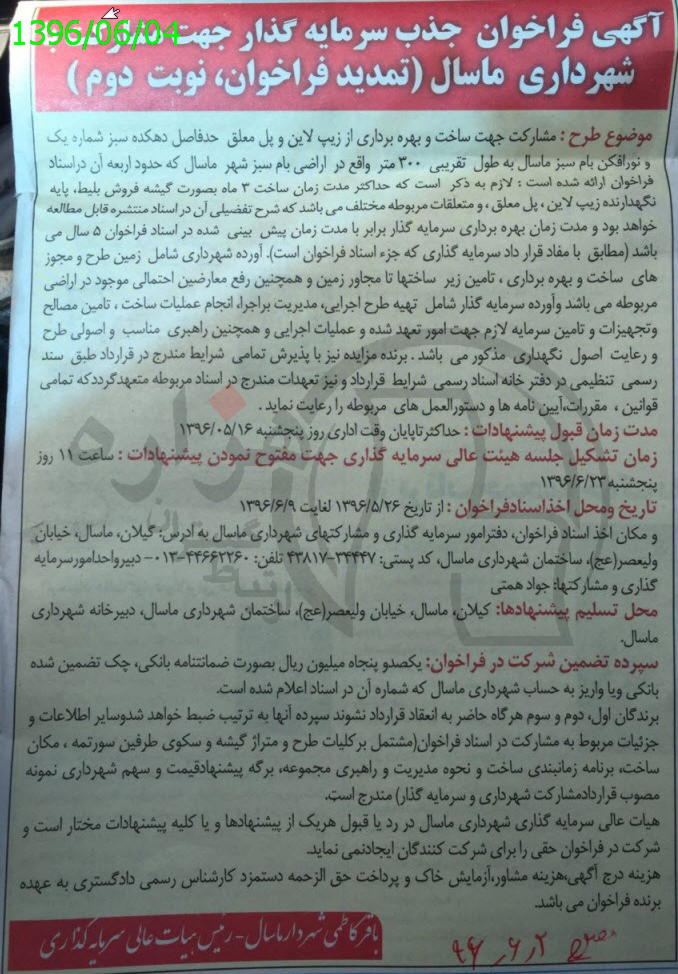 1396/06/04
آگهی فراخوان جذب سرمایه گذار جهت
شهرداری ماسال (تمدید فراخوان، نوبت دوم)
موضوع طرح : مشارکت جهت ساخت و بهره برداری از زیپ لاین و پل معلق حدفاصل دهکده سبز شماره یک
و نورافکن بام سبز ماسال به طول تقریبی ۳۰۰ متر واقع در اراضی بام سبز شهر ماسال که حدود اربعه آن دراسناد
فراخوان ارائه شده است : لازم به ذکر است که حداکثر مدت زمان ساخت ۳ ماه بصورت گیشه فروش بلیط، پایه
نگهدارنده زیپ لاین ، پل معلق ، و متعلقات مربوطه مختلف می باشد که شرح تفضیلی آن در اسناد منتشره قابل مطالعه
خواهد بود و مدت زمان بهره برداری سرمایه گذار برابر با مدت زمان پیش بینی شده در اسناد فراخوان ۵ سال می
باشد (مطابق با مفاد قرار داد سرمایه گذاری که جزء اسناد فراخوان است). آورده شهرداری شامل زمین طرح و مجوز
های ساخت و بهره برداری ، تامین زیر ساختها تا مجاور زمین و همچنین رفع معارضین احتمالی موجود در اراضی
مربوطه می باشد وآورده سرمایه گذار شامل تهیه طرح اجرایی، مدیریت براجرا، انجام عملیات ساخت ، تامین مصالح
وتجهیزات و تامین سرمایه لازم جهت امور تعهد شده و عملیات اجرایی و همچنین راهبری مناسب و اصولی طرح
و رعایت اصول نگهداری مذکور می باشد . برنده مزایده نیز با پذیرش تمامی شرایط مندرج در قرارداد طبق سند
رسمی تنظیمی در دفتر خانه اسناد رسمی شرایط قرارداد و نیز تعهدات مندرج در اسناد مربوطه متعهدگرددکه تمامی
قوانین ، مقررات،آیین نامه ها و دستورالعمل های مربوطه را رعایت نماید .
مدت زمان قبول پیشنهادات : حداکثرتاپایان وقت اداری روز پنجشنبه ۱۳۹۶/۰۵/۱۶
زمان تشکیل جلسه هیئت عالی سرمایه گذاری جهت مفتوح نمودن پیشنهادات : ساعت ۱۱ روز
پنجشنبه ۱۳۹۶/۶/۲۳
تاریخ ومحل اخذاسنادفراخوان : از تاریخ ۱۳۹۶/۵/۲۶ لغایت ۱۳۹۶/۶/۹
و مکان اخذ اسناد فراخوان، دفترامور سرمایه گذاری و مشارکتهای شهرداری ماسال به ادرس: گیلان، ماسال، خیابان
ولیعصر(عج)، ساختمان شهرداری ماسال، کد پستی: ۳۴۴۴۷-۴۳۸۱۷ تلفن: ۴۴۶۶۲۲۶۰-۰۱۳- دبیرواحدامورسرمایه
گذاری و مشارکتها: جواد همتی
محل تسلیم پیشنهادها: گیلان، ماسال، خیابان ولیعصر(عج)، ساختمان شهرداری ماسال، دبیرخانه شهرداری
ماسال.
سپرده تضمین شرکت در فراخوان: یکصدو پنجاه میلیون ریال بصورت ضمانتنامه بانکی، چک تضمین شده
بانکی ویا واریز به حساب شهرداری ماسال که شماره آن در اسناد اعلام شده است.
برندگان اول، دوم و سوم هرگاه حاضر به انعقاد قرارداد نشوند سپرده آنها به ترتیب ضبط خواهد شدوسایر اطلاعات و
جزئیات مربوط به مشارکت در اسناد فراخوان(مشتمل برکلیات طرح و متراژ گیشه و سکوی طرفین سورتمه ، مکان
ساخت، برنامه زمانبندی ساخت و نحوه مدیریت و راهبری مجموعه، برگه پیشنهادقیمت و سهم شهرداری نمونه
مصوب قراردادمشارکت شهرداری و سرمایه گذار) مندرج است.
هیات عالی سرمایه گذاری شهرداری ماسال در رد یا قبول هریک از پیشنهادها و یا کلیه پیشنهادات مختار است و
شرکت در فراخوان حقی را برای شرکت کنندگان ایجادنمی نماید.
هزینه درج آگهی،هزینه مشاور،آزمایش خاک و پرداخت حق الزحمه دستمزد کارشناس رسمی دادگستری به عهده
برنده فراخوان می باشد.
باقر کاظمی شهردار ماسال - رئیس هیات عالی سرمایه گذاری
۹۶٫۶٫۲
هزاره